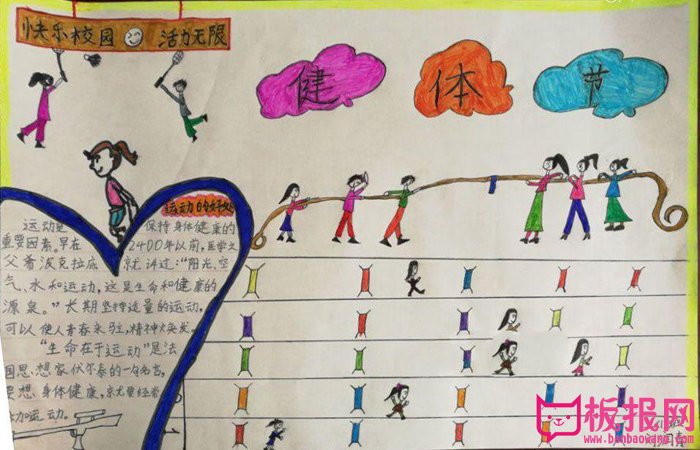 快乐校园 活力无限
健 体 节
运动的好处
运动是保持身体健康的
重要因素。早在2400年以前,医学之
父希波克拉底就讲过:“阳光、空
气、水和运动,这是生命和健康的
源泉。”长期坚持适量的运动,
可以使人青春永驻,精神焕发。
“生命在于运动”是法
国思想家伏尔泰的一句名言。
要想身体健康,就要经常
参加运动。
板报网
www.banbaowang.com